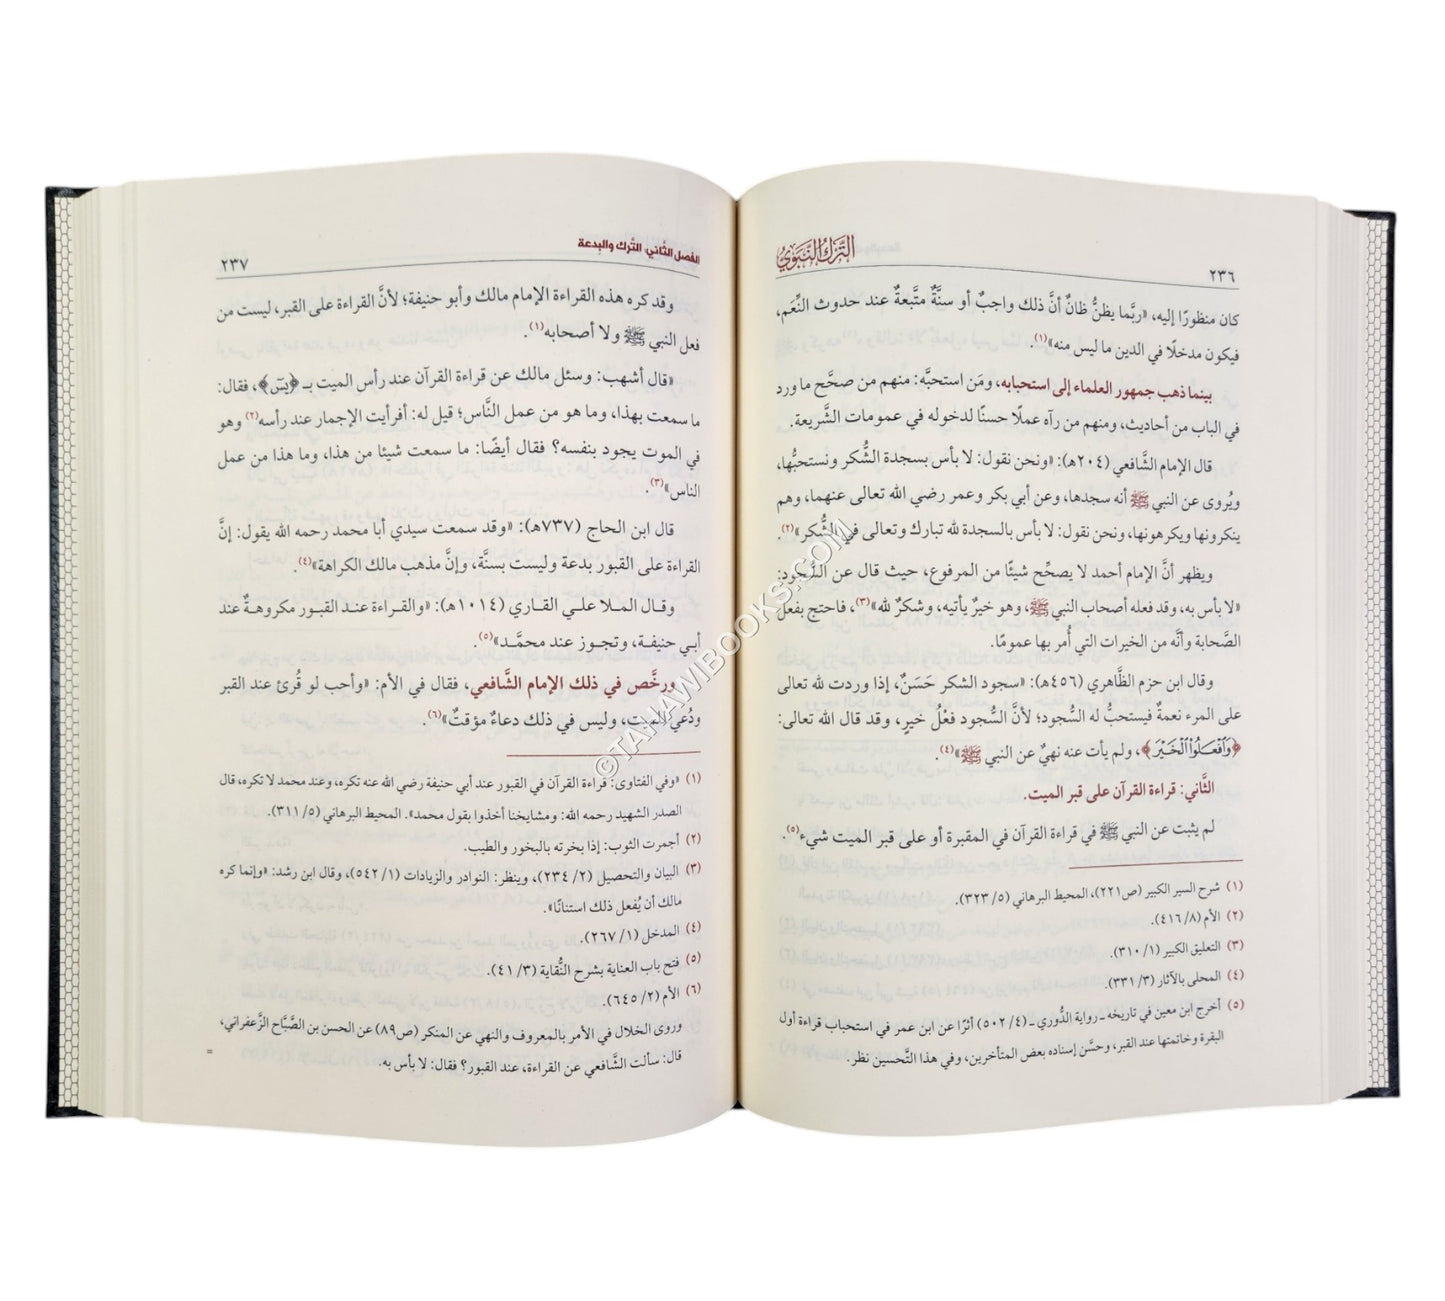 ٢٣٦
التَّرْكُ النَّبَوِيُّ
كان منظورًا إليه، «ربَّما يظنُّ ظانٌ أنَّ ذلك واجبٌ أو سنَّةٌ متَّبعةٌ عند حدوث النِّعَم،
فيكون مدخلًا في الدين ما ليس منه»(١).
بينما ذهب جمهور العلماء إلى استحبابه، ومَن استحبَّه: منهم من صحَّح ما ورد
في الباب من أحاديث، ومنهم من رآه عملًا حسنًا لدخوله في عمومات الشَّريعة.
قال الإمام الشَّافعي (٢٠٤هـ): «ونحن نقول: لا بأس بسجدة الشُّكر ونستحبُّها،
ويُروى عن النبي ﷺ أنه سجدها، وعن أبي بكر وعمر رضي الله تعالى عنهما، وهم
ينكرونها ويكرهونها، ونحن نقول: لا بأس بالسجدة لله تبارك وتعالى في الشُّكر»(٢).
ويظهر أنَّ الإمام أحمد لا يصحِّح شيئًا من المرفوع، حيث قال عن السُّجود:
«لا بأس به، وقد فعله أصحاب النبي ﷺ، وهو خيرٌ يأتيه، وشكرٌ لله»(٣)، فاحتج بفعل
الصَّحابة وأنَّه من الخيرات التي أُمر بها عمومًا.
وقال ابن حزم الظَّاهري (٤٥٦هـ): «سجود الشكر حَسَنٌ، إذا وردت لله تعالى
على المرء نعمةٌ فيستحبُّ له السُّجود؛ لأنَّ السُّجود فعْلُ خيرٍ، وقد قال الله تعالى:
﴿وَٱفْعَلُوا۟ ٱلْخَيْرَ﴾، ولم يأت عنه نهيٌ عن النبي ﷺ»(٤).
الثَّاني: قراءة القرآن على قبر الميت.
لم يثبت عن النبي ﷺ في قراءة القرآن في المقبرة أو على قبر الميت شيء(٥).
(١) شرح السير الكبير (ص٢٢١)، المحيط البرهاني (٥/ ٣٢٣).
(٢) الأم (٨/ ٤١٦).
(٣) التعليق الكبير (١/ ٣١٠).
(٤) المحلى بالآثار (٣/ ٣٣١).
(٥) أخرج ابن معين في تاريخه ـ رواية الدُّوري ـ (٤/ ٥٠٢) أثرًا عن ابن عمر في استحباب قراءة أول
البقرة وخاتمتها عند القبر، وحسَّن إسناده بعض المتأخرين، وفي هذا التَّحسين نظر.
الفصل الثَّاني: التَّرك والبدعة
٢٣٧
وقد كره هذه القراءة الإمام مالك وأبو حنيفة؛ لأنَّ القراءة على القبر، ليست من
فعل النبي ﷺ ولا أصحابه(١).
«قال أشهب: وسئل مالك عن قراءة القرآن عند رأس الميت بـ ﴿يسٓ﴾، فقال:
ما سمعت بهذا، وما هو من عمل النَّاس؛ قيل له: أفرأيت الإجمار عند رأسه(٢) وهو
في الموت يجود بنفسه؟ فقال أيضًا: ما سمعت شيئا من هذا، وما هذا من عمل
الناس»(٣).
قال ابن الحاج (٧٣٧هـ): «وقد سمعت سيدي أبا محمد رحمه الله يقول: إنَّ
القراءة على القبور بدعة وليست بسنَّة، وإنَّ مذهب مالك الكراهة»(٤).
وقال الملا علي القاري (١٠١٤هـ): «والقراءة عند القبور مكروهةٌ عند
أبي حنيفة، وتجوز عند محمَّد»(٥).
ورخَّص في ذلك الإمام الشَّافعي، فقال في الأم: «وأحب لو قُرئ عند القبر
ودُعي للميت، وليس في ذلك دعاءٌ مؤقتٌ»(٦).
(١) «وفي الفتاوى: قراءة القرآن في القبور عند أبي حنيفة رضي الله عنه تكره، وعند محمد لا تكره، قال
الصدر الشهيد رحمه الله: ومشايخنا أخذوا بقول محمد». المحيط البرهاني (٥/ ٣١١).
(٢) أجمرت الثوب: إذا بخرته بالبخور والطيب.
(٣) البيان والتحصيل (٢/ ٢٣٤)، وينظر: النوادر والزيادات (١/ ٥٤٢)، وقال ابن رشد: «وإنما كره
مالك أن يُفعل ذلك استنانًا».
(٤) المدخل (١/ ٢٦٧).
(٥) فتح باب العناية بشرح النُّقاية (٣/ ٤١).
(٦) الأم (٢/ ٦٤٥).
وروى الخلال في الأمر بالمعروف والنهي عن المنكر (ص٨٩) عن الحسن بن الصَّبَّاح الزَّعفراني،
قال: سألت الشَّافعي عن القراءة، عند القبور؟ فقال: لا بأس به.
=
©TAHAWIBOOKS.COM